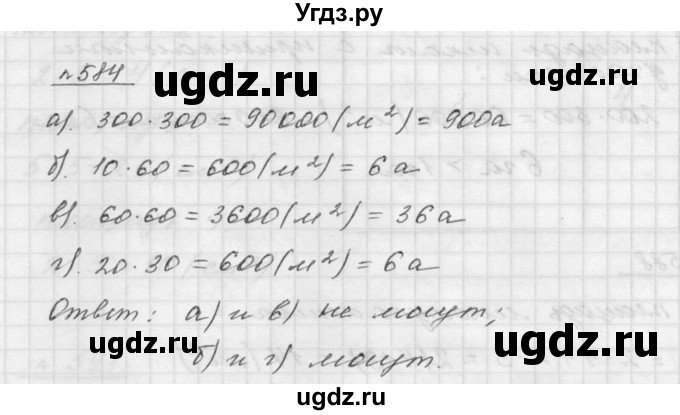 Угдз.ру
№584
ugdz.ru ugdz.ru
а). 300·300 = 90000(м²) = 900а
б). 10·60 = 600(м²) = 6а
ugdz.ru ugdz.ru
в). 60·60 = 3600(м²) = 36а
г). 20·30 = 600(м²) = 6а
Ответ: а) и в) не могут;
ugdz.ru ugdz.ru
б) и г) могут.
ugdz.ru